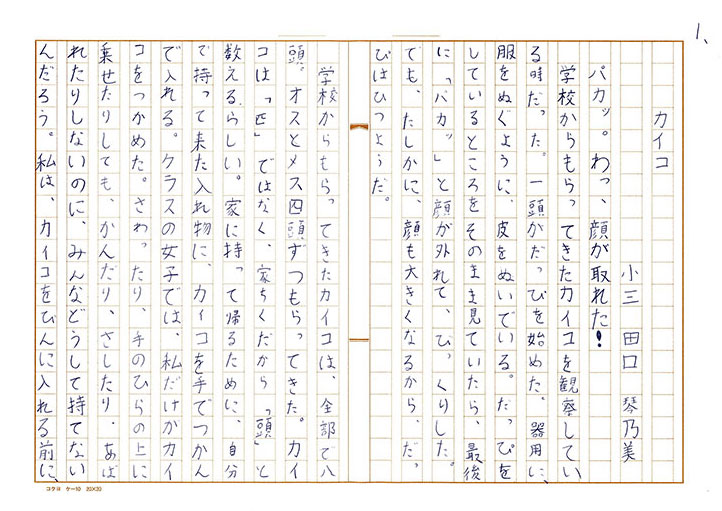 1、
カイコ
小三 田口 琴乃美
パカッ。わっ、顔が取れた!
学校からもらってきたカイコを観察してい
る時だった。一頭がだっぴを始めた。器用に、
服をぬぐように、皮をぬいでいる。だっぴを
しているところをそのまま見ていたら、最後
に「パカッ」と顔が外れて、びっくりした。
でも、たしかに、顔も大きくなるから、だっ
ぴはひつようだ。
学校からもらってきたカイコは、全部で八
頭。オスとメス四頭ずつもらってきた。カイ
コは「匹」ではなく、家ちくだから「頭」と
数えるらしい。家に持って帰るために、自分
で持って来た入れ物に、カイコを手でつかん
で入れる。クラスの女子では、私だけがカイ
コをつかめた。さわったり、手のひらの上に
乗せたりしても、かんだり、さしたり、あば
れたりしないのに、みんなどうして持てない
んだろう。私は、カイコをびんに入れる前に、
コクヨ ケー10 20×20